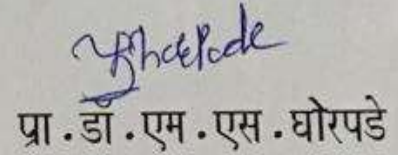 प्रा.डॉ.एम.एस.घोरपडे